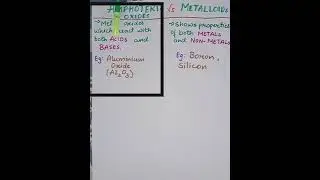 AMPHOTERIC Vs METALLOIDS
OXIDES
→ Metal oxides
which react with
both ACIDS and
BASES.
Eg: Aluminium
Oxide
(Al2O3)
→ Shows properties
of both METALS
and NON-METALS
Eg: Boron,
Silicon